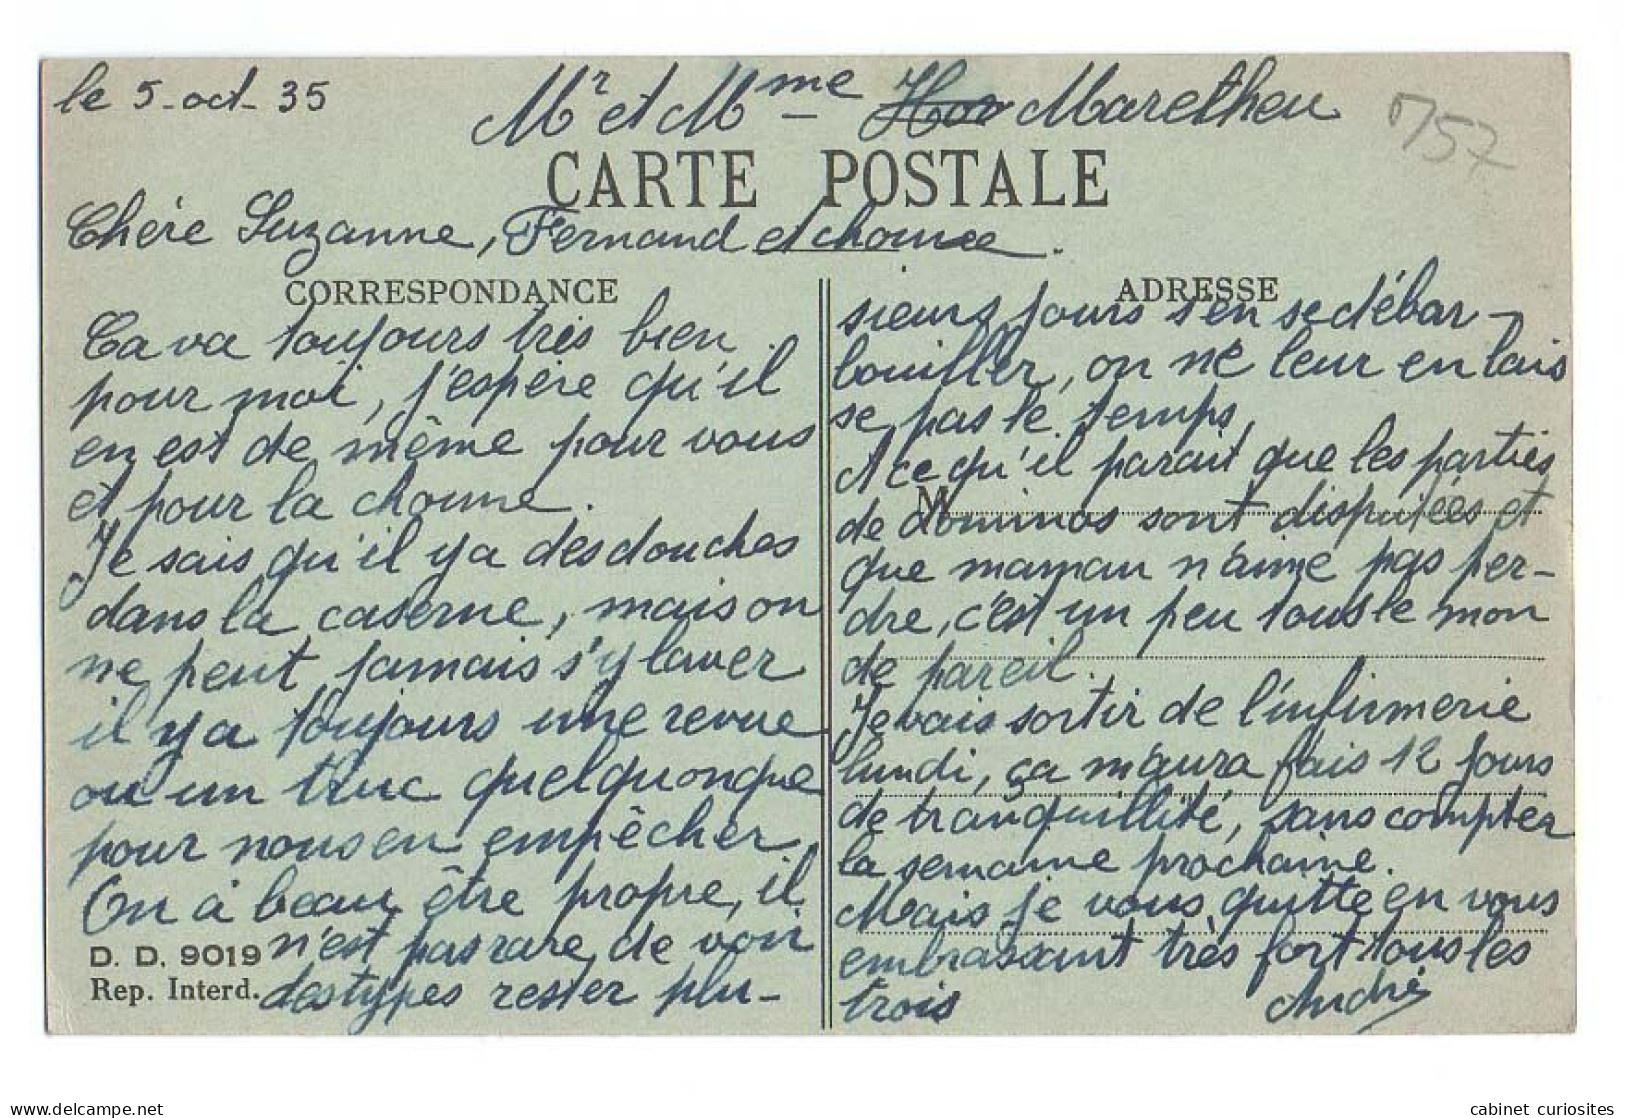 le 5-oct-35
Mr et Mme Maretheu
M57
CARTE POSTALE
Chére Suzanne, Fernand et choune.
CORRESPONDANCE
Ca va toujours très bien
pour moi, j'espère qu'il
en est de même pour vous
et pour la choune.
Je sais qu'il y a des douches
dans la caserne, mais on
ne peut jamais s'y laver
il y a toujours une revue
ou un truc quelquonque
pour nous en empêcher
On à beau être propre, il
n'est pas rare de voir
des types rester plu-
D. D. 9019
Rep. Interd.
ADRESSE
sieurs jours s'en se débar-
bouiller, on ne leur en lais
se pas le temps,
A ce qu'il parait que les parties
M
de dominos sont disputées et
que maman n'aime pas per-
dre, c'est un peu tous le mon
de pareil.
Je vais sortir de l'infirmerie
lundi, ça m'aura fais 12 jours
de tranquillité, sans compter
la semaine prochaine.
Mais je vous quitte en vous
embrassant très fort tous les
trois
André
cabinet curiosites
www.delcampe.net